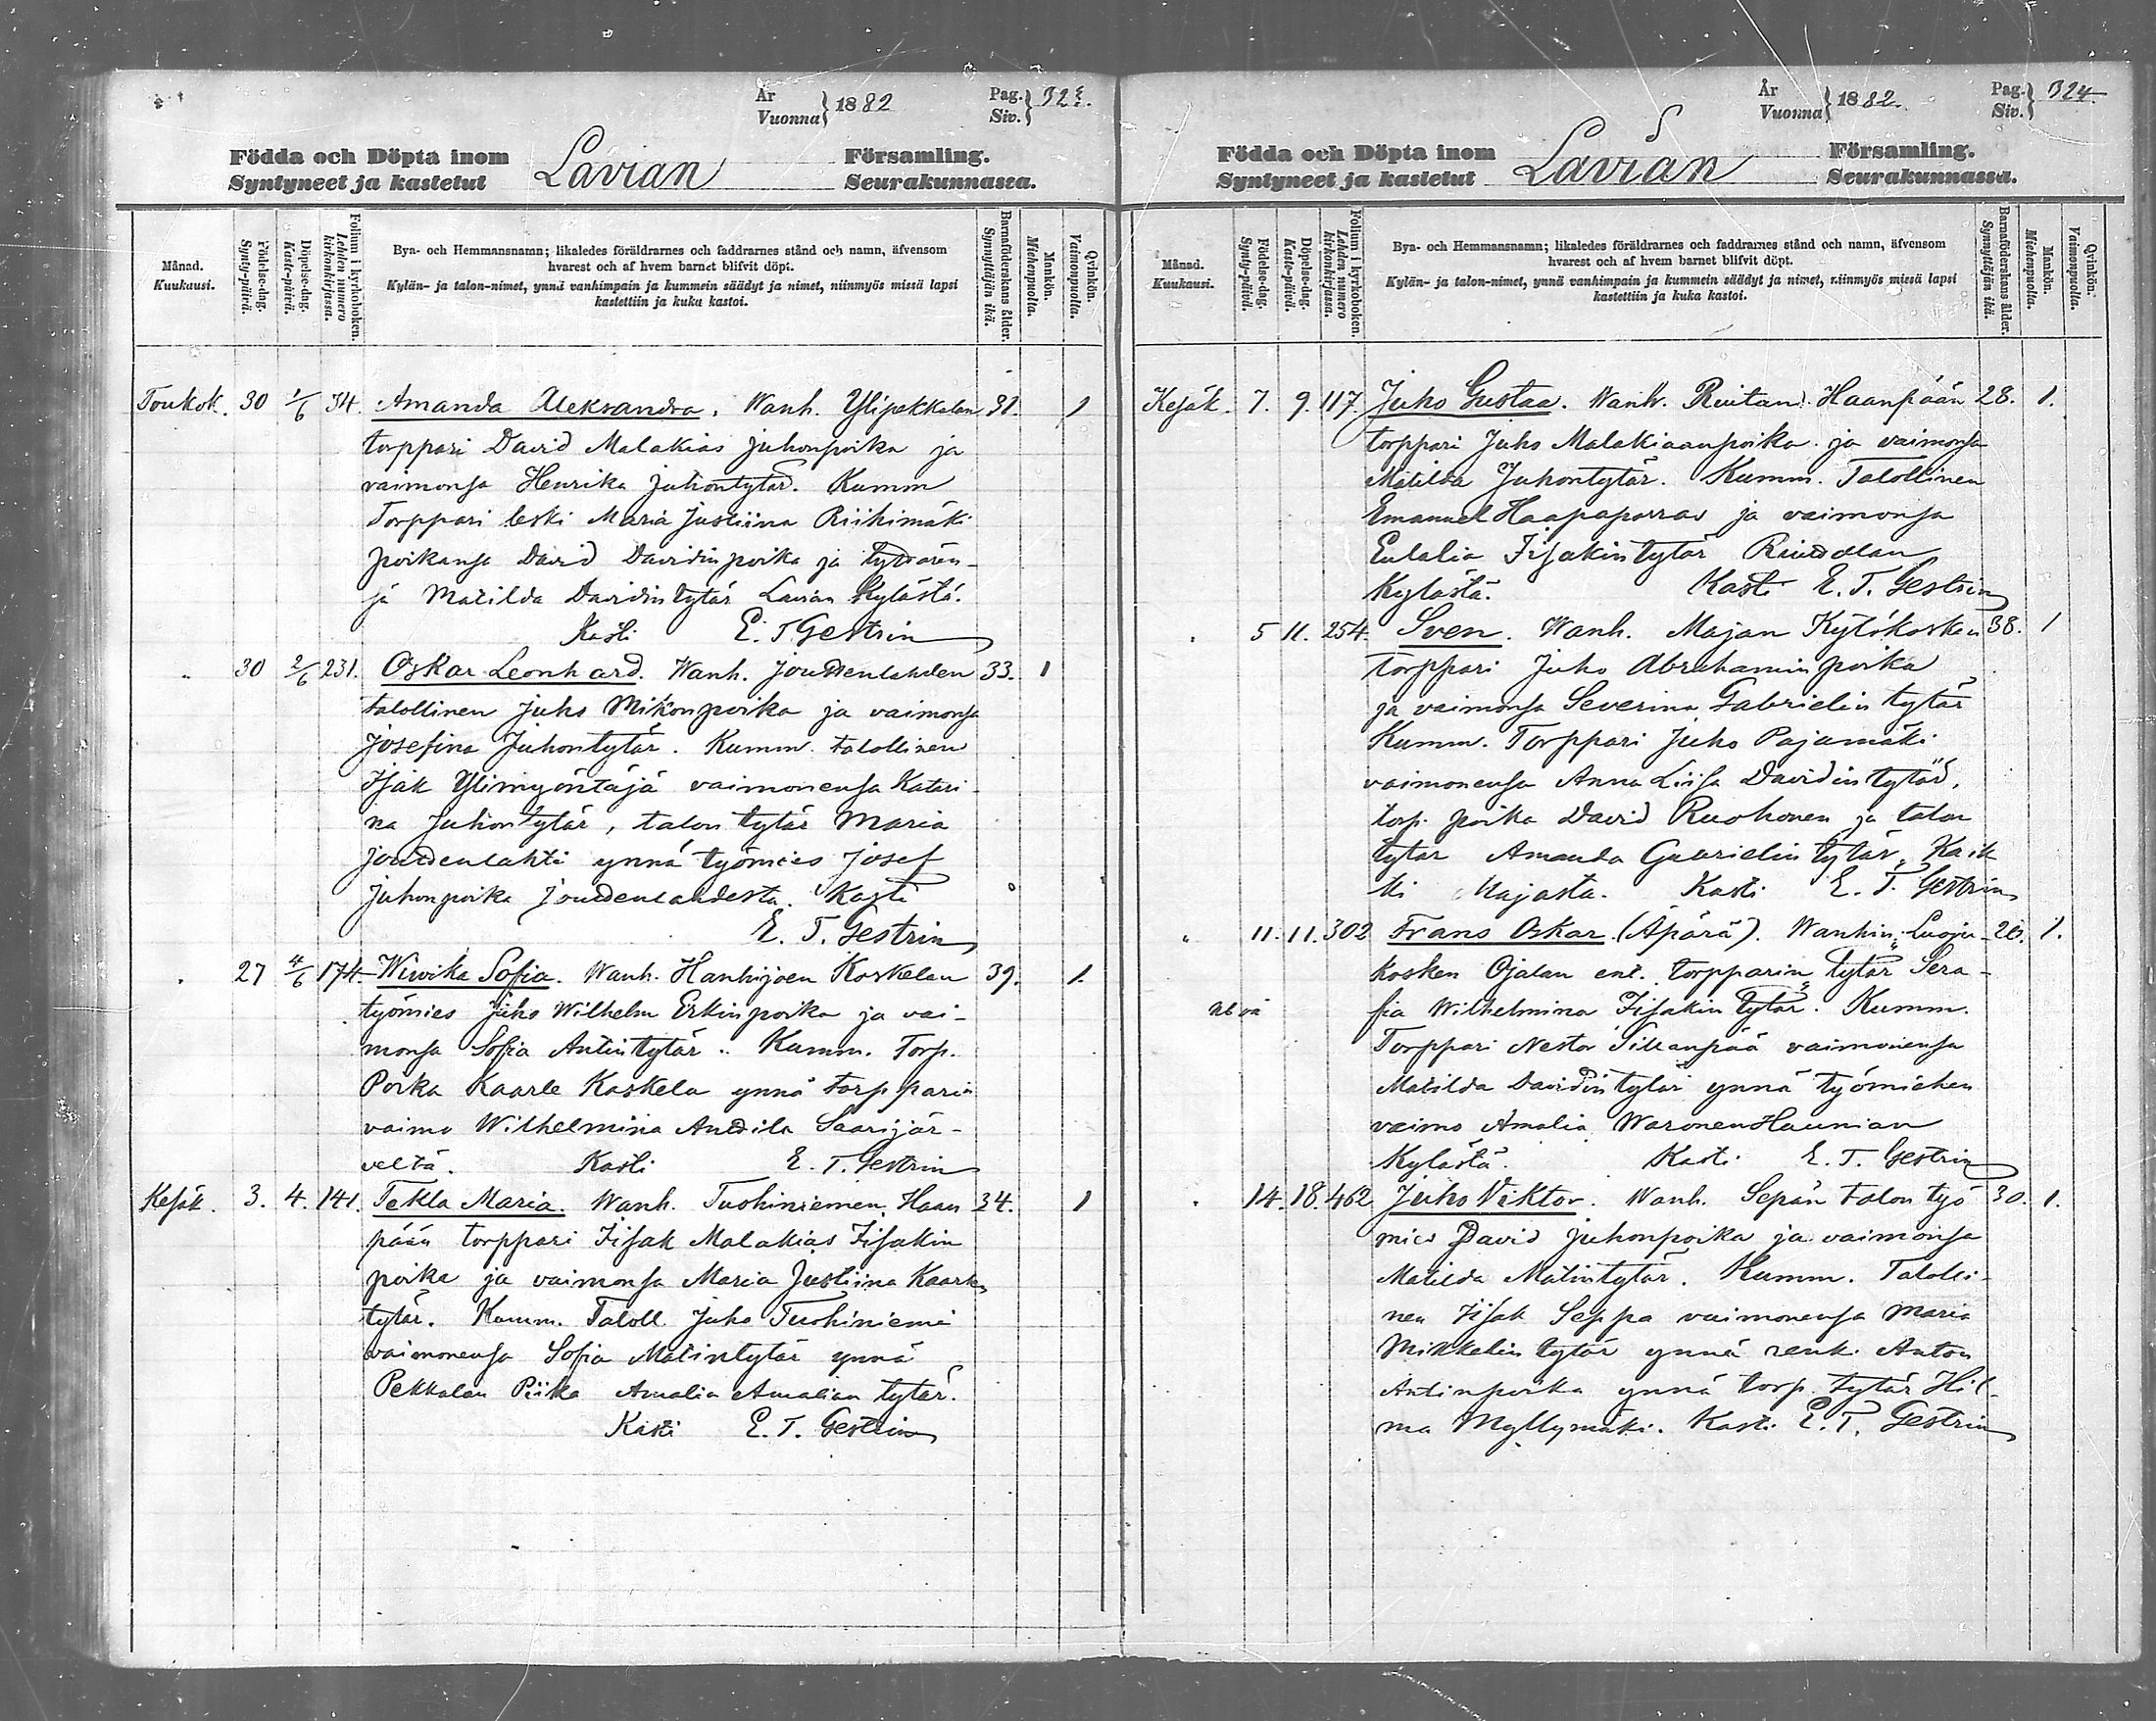 År
Vuonna} 1882
Pag.
Siv.} 323.
Födda och Döpta inom
Syntyneet ja kastetut
Lavian
Församling.
Seurakunnassa.
Månad.
Kuukausi.
Födelse-dag.
Synty-päivä.
Döpelse-dag.
Kaste-päivä.
Folium i kyrkoboken.
Lehden numero kirkonkirjassa.
Bya- och Hemmansnamn; likaledes föräldrarnes och faddrarnes stånd och namn, äfvensom
hvarest och af hvem barnet blifvit döpt.
Kylän- ja talon-nimet, ynnä vanhimpain ja kummein säädyt ja nimet, niinmyös missä lapsi
kastettiin ja kuka kastoi.
Barnaföderskans ålder.
Synnyttäjän ikä.
Mankön.
Miehenpuolia.
Qvinkön.
Vaimonpuolia.
Toukok. 30 1/6 34. Amanda Aleksandra. Wanh. Ylipekkalan 31. 1
torppari David Malakias Juhonpoika ja
vaimonsa Henrika Juhontytär. Kumm
Torppari leski Maria Justiina Riihimäki
poikansa David Davidinpoika ja tyttären-
sä Matilda Davidintytär Lavian Kylästä.
Kasti E. T. Gestrin
" 30 2/6 231. Oskar Leonhard. Wanh. Joudenlahden 33. 1
talollinen Juho Mikonpoika ja vaimonsa
Josefina Juhontytär. Kumm. talollinen
Isak Ylimyöntäjä vaimonensa Katari-
na Juhontytär, talon tytär Maria
Joudenlahti ynnä työmies Josef
Juhonpoika Joudenlahdesta. Kasti
E. T. Gestrin
" 27 4/6 174. Wiwika Sofia. Wanh. Hanhijoen Koskelan 39. 1.
työmies Juho Wilhelm Erkinpoika ja vai-
monsa Sofia Antintytär. Kumm. Torp.
Poika Kaarle Koskela ynnä torpparin
vaimo Wilhelmina Andila Saarijär-
veltä. Kasti E. T. Gestrin
Kesäk. 3. 4. 141. Tekla Maria. Wanh. Tuohiniemen Haan 34. 1
pään torppari Iisak Malakias Iisakin
poika ja vaimonsa Maria Justiina Kaarlen
tytär. Kumm. Taloll. Juho Tuohiniemi
vaimonensa Sofia Matintytär ynnä
Pekkalan Piika Amalia Amalian tytär.
Kasti E. T. Gestrin
År
Vuonna} 1882.
Pag.
Siv.} 324.
Födda och Döpta inom
Syntyneet ja kastetut
Lavian
Församling.
Seurakunnassa.
Månad.
Kuukausi.
Födelse-dag.
Synty-päivä.
Döpelse-dag.
Kaste-päivä.
Folium i kyrkoboken.
Lehden numero kirkonkirjassa.
Bya- och Hemmansnamn; likaledes föräldrarnes och faddrarnes stånd och namn, äfvensom
hvarest och af hvem barnet blifvit döpt.
Kylän- ja talon-nimet, ynnä vanhimpain ja kummein säädyt ja nimet, niinmyös missä lapsi
kastettiin ja kuka kastoi.
Barnaföderskans ålder.
Synnyttäjän ikä.
Mankön.
Miehenpuolia.
Qvinkön.
Vaimonpuolia.
Kesäk. 7. 9. 117. Juho Gustaa. Wanh. Haanpään 28. 1.
torppari Juho Malakiaanpoika ja vaimonsa
Matilda Juhontytär. Kumm. Talollinen
Emanuel Haapaporras ja vaimonsa
Eulalia Iisakintytär
Kylästä. Kasti E. T. Gestrin
" 5 11. 254. Sven. Wanh. Majan Kytökosken 38. 1
torppari Juho Abrahamin poika
ja vaimonsa Severina Gabrielin tytär
Kumm. Torppari Juho Pajamäki
vaimonensa Anna Liisa Davidin tytär,
torp. poika David Ruohonen ja talon
tytär Amanda Gabrielin tytär. Kaik
ki Majasta. Kasti E. T. Gestrin
" 11. 11. 302 Frans Oskar (Äpärä). Wanhin: Luoju- 20. 1.
kosken Ojalan ent. torpparin tytär Sera-
fia Wilhelmina Iisakin tytär. Kumm.
Torppari Nestor Sillanpää vaimonensa
Matilda Davidin tytär ynnä työmiehen
vaimo Amalia Waronen Haunian
Kylästä. Kasti E. T. Gestrin
" 14. 18. 462 Juho Viktor. Wanh. Sepän talon työ 30. 1.
mies David Juhonpoika ja vaimonsa
Matilda Matintytär. Kumm. Talolli-
nen Iisak Seppa vaimonensa Maria
Mikkelin tytär ynnä renk. Anton
Antinpoika ynnä torp. tytär Hil-
ma Myllymäki. Kasti E. T. Gestrin